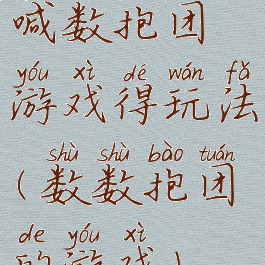 喊数抱团
yóu xì dé wán fǎ
游戏得玩法
shù shù bào tuán
(数数抱团
de yóu xì
的游戏)